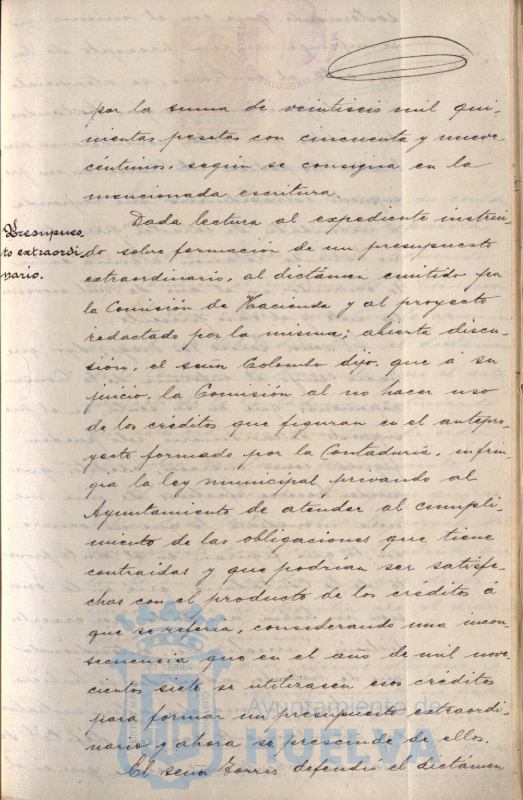 por la suma de veintiseis mil qui-
nientas pesetas con cincuenta y nueve
céntimos, según se consigna en la
mencionada escritura.
Presupues-
to extraordi-
nario.
Dada lectura al expediente instrui-
do sobre formación de un presupuesto
extraordinario, al dictámen emitido por
la Comisión de Hacienda y al proyecto
redactado por la misma; abierta discu-
sión, el señor Colombo dijo, que á su
juicio, la Comisión al no hacer uso
de los créditos que figuran en el antepro-
yecto formado por la Contaduría, infrin-
gia la ley municipal privando al
Ayuntamiento de atender al cumpli-
miento de las obligaciones que tiene
contraidas y que podrian ser satisfe-
chas con el producto de los créditos á
que se referia, considerando una incon-
secuencia que en el año de mil nove-
cientos siete se utilizasen esos créditos
para formar un presupuesto extraordi-
nario y ahora se prescinde de ellos.
El señor Torres defendió el dictámen
Ayuntamiento de
HUELVA